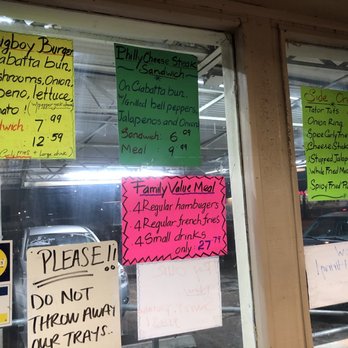 Bigboy Burger
Ciabatta bun,
mushrooms, Onion
lettuce,
7.99
12.59
large drink)
Philly Cheese Steak
Sandwich
On Ciabatta bun,
Grilled bell peppers
Jalapenos and Onions
Sandwich: 6.09
Meal 9.99
Family Value Meal
4 Regular hambugers
4 Regular french fries
4 Small drinks
only 27.99
PLEASE!!
DO NOT
THROW AWAY
OUR TRAYS..
Side Or
Tator Tots
Onion Ring
Spicy Curly Fri
Cheese Sticks
(Stuffed Jalap
Whole Fried Mu
Spicy Fried Pi